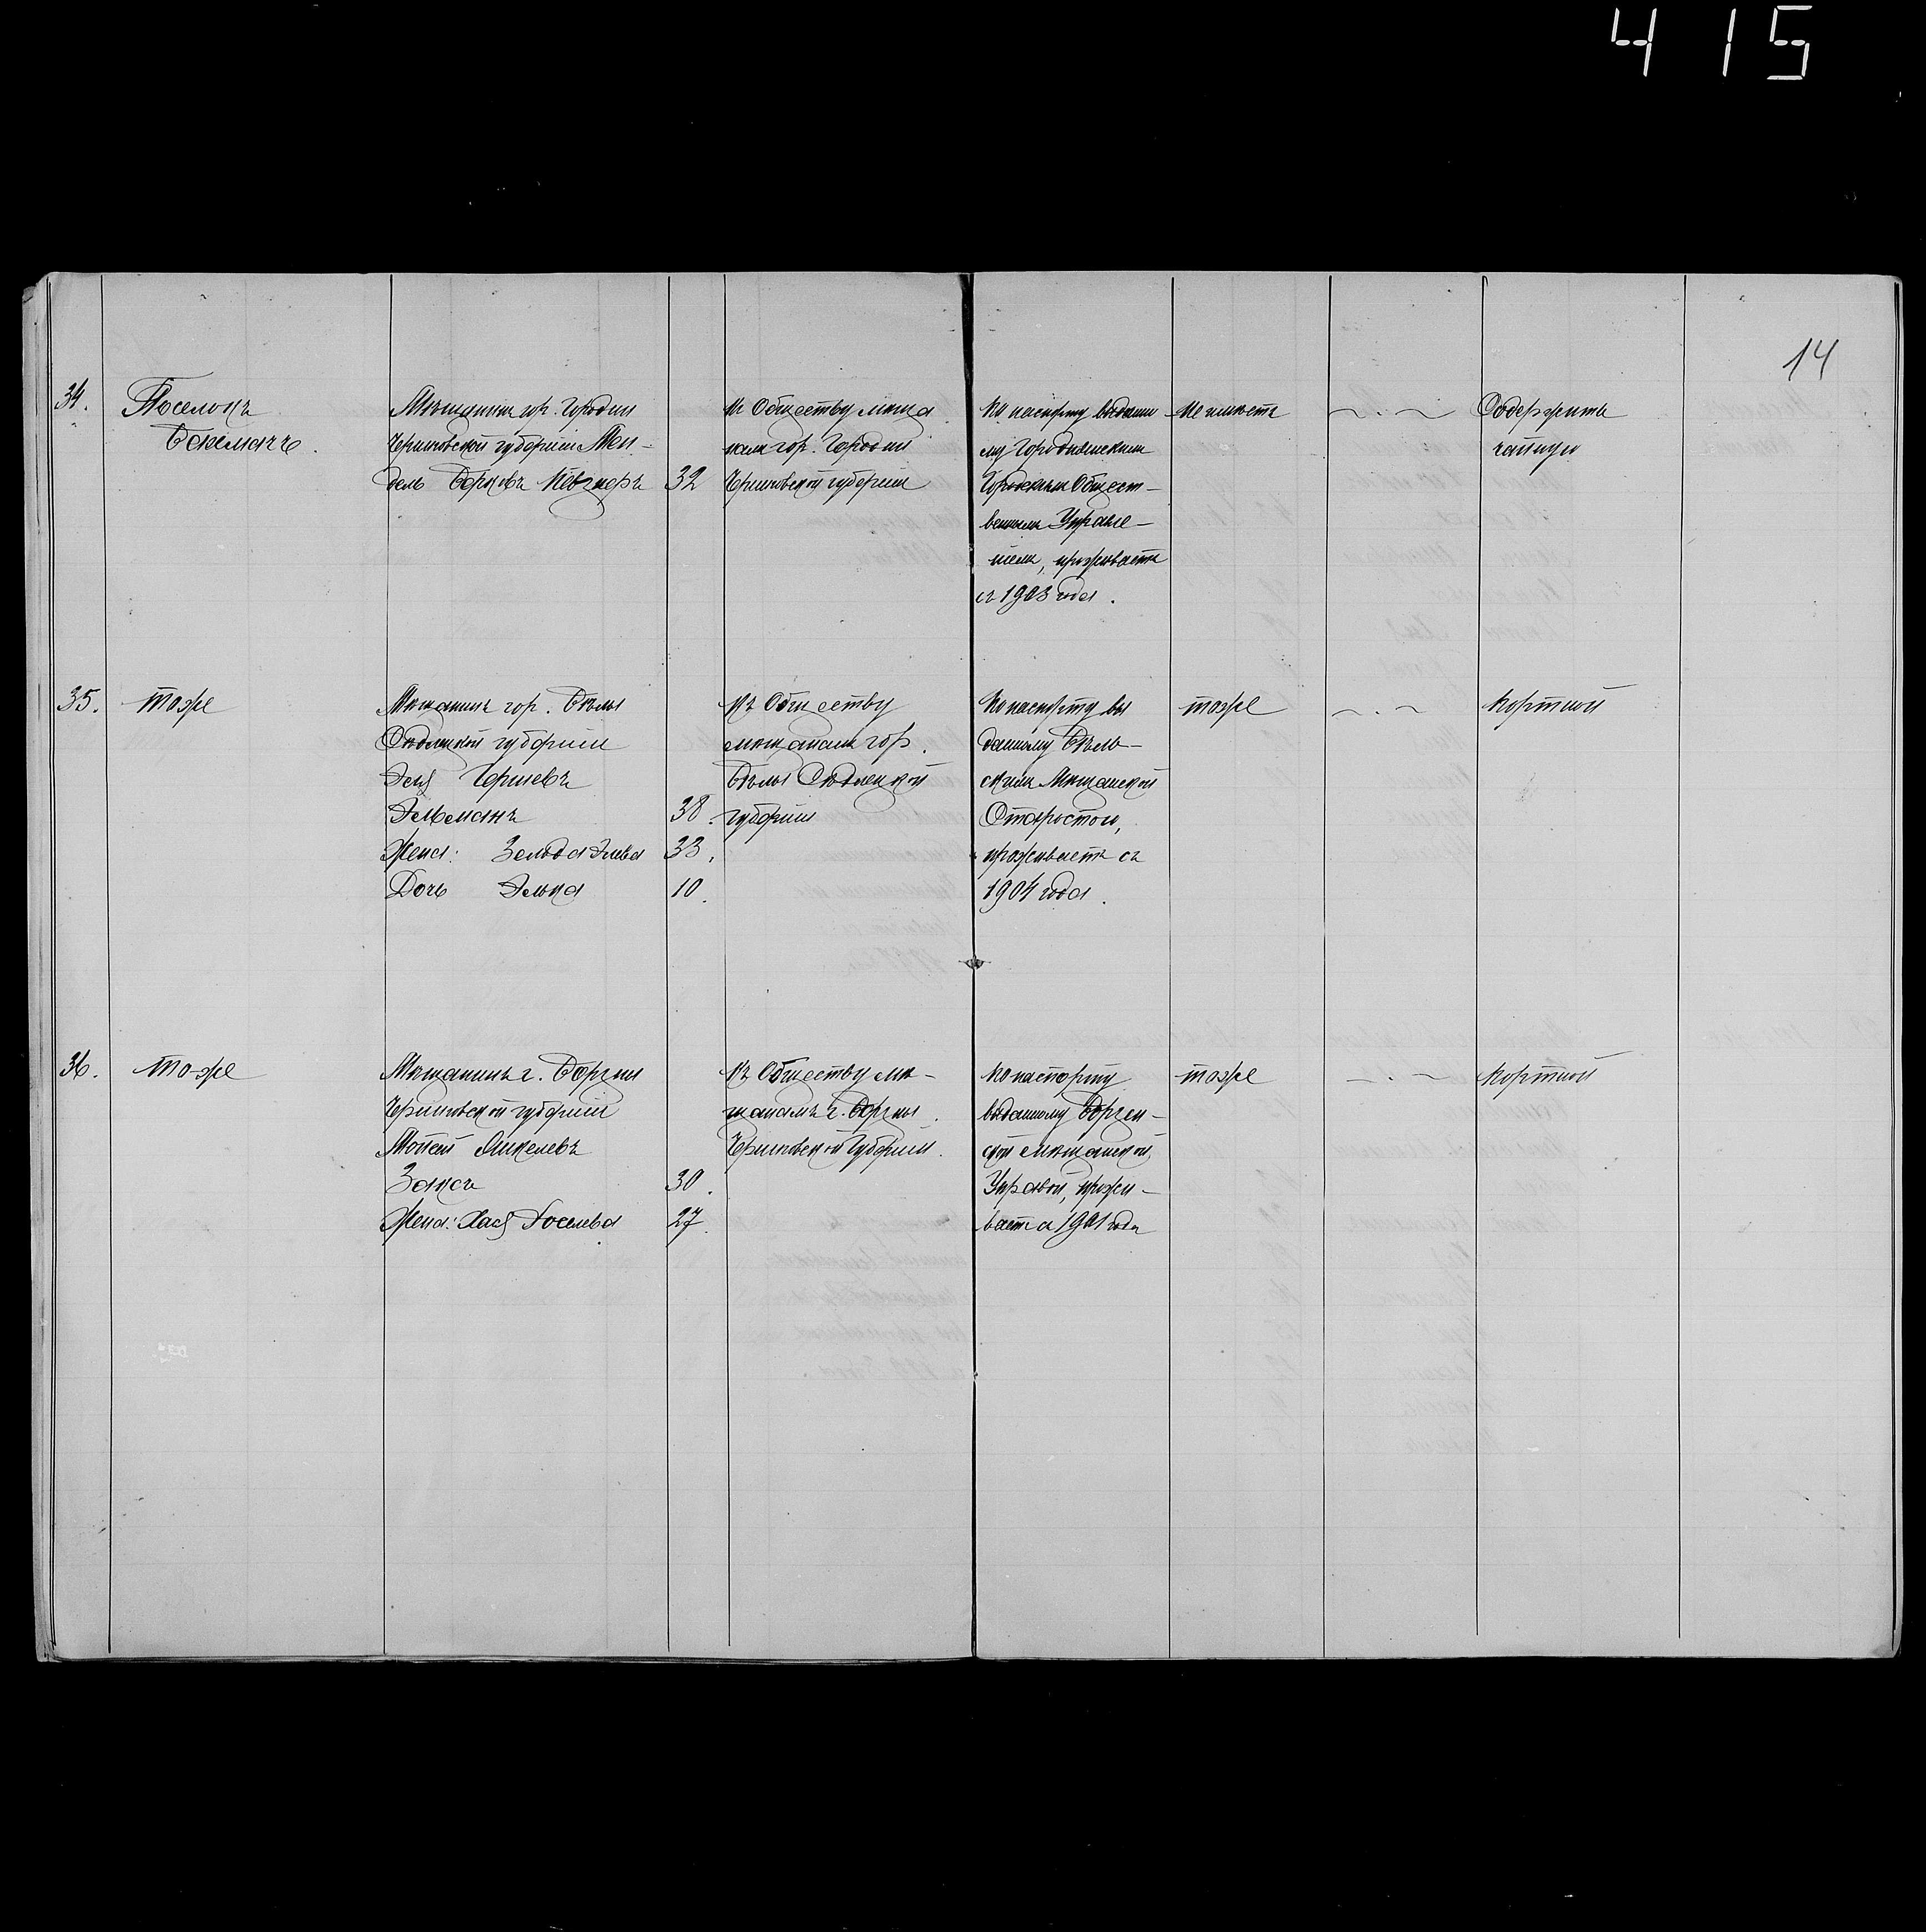 415
14
34.
Поселокъ
Бахмачъ.
Мѣщанинъ гор. Городни
Черниговской губерніи Мен-
дель Берковъ Пѣвзнеръ 32
къ Обществу мѣща
намъ гор. Городни
Черниговской губерніи
По паспорту выданно
му Городнянскимъ
Городскимъ Общест-
веннымъ Управле-
ніемъ, проживаетъ
съ 1903 года.
Не имѣетъ
Содержитъ
чайную
35.
тоже
Мѣщанинъ гор. Бѣлы
Сѣдлецкой губерніи
Гершевъ
38.
Жена: Зельда 33.
Дочь Элька 10.
Къ Обществу
мѣщанамъ гор.
Бѣлы Сѣдлецкой
губерніи
По паспорту вы
данному Бѣль-
скимъ Мѣщанской
Старостою,
проживаетъ съ
1904 года.
тоже
Портной
36.
тоже
Мѣщанинъ г. Борзны
Черниговской губерніи
Янкелевъ
Заксъ 30.
Жена: Хася Іоселева 27.
Къ Обществу мѣ-
щанамъ г. Борзны
Черниговской Губерніи.
По паспорту
выданному Борзен-
ской мѣщанской
Управой, прожи-
ваетъ с 1901 года
тоже
Портной